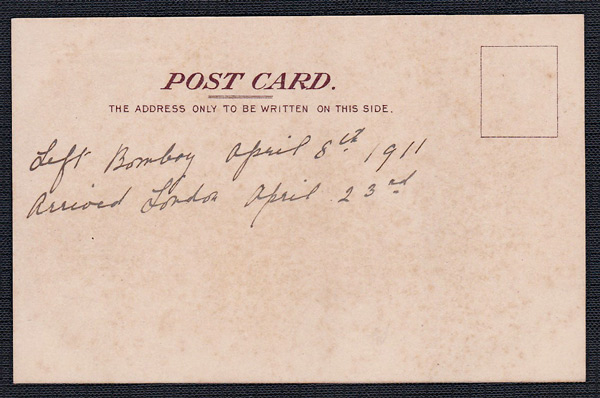 POST CARD.
THE ADDRESS ONLY TO BE WRITTEN ON THIS SIDE.
Left Bombay April 8th 1911
Arrived London April 23rd